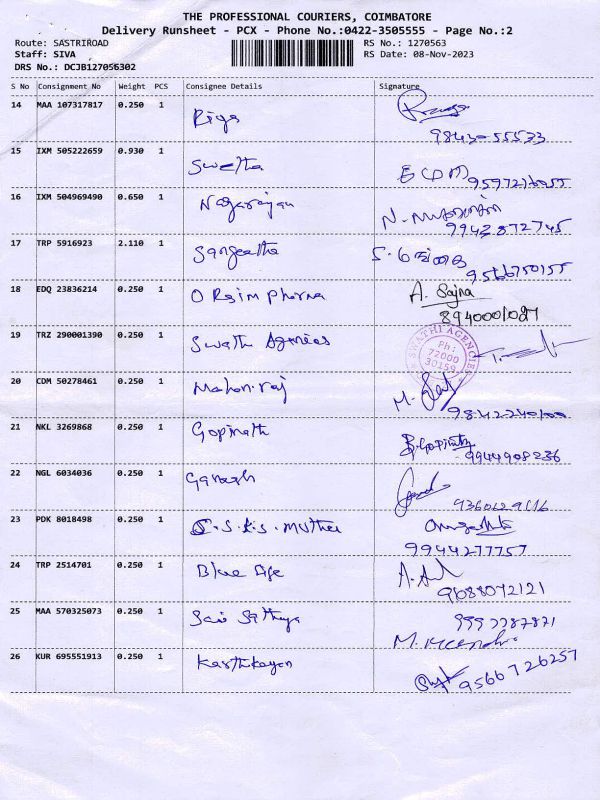 THE PROFESSIONAL COURIERS, COIMBATORE
Delivery Runsheet - PCX - Phone No.:0422-3505555 - Page No.:2
Route: SASTRIROAD RS No.: 1270563
Staff: SIVA RS Date: 08-Nov-2023
DRS No.: DCJB127056302
S No Consignment No Weight PCS Consignee Details Signature
14 MAA 107317817 0.250 1 Riya
15 IXM 505222659 0.930 1 Swetha
16 IXM 504969490 0.650 1 Nagarajan
9942872745
17 TRP 5916923 2.110 1 Sangeetha
9566750155
18 EDQ 23836214 0.250 1 A. Sajna
8940001027
19 TRZ 290001390 0.250 1 Swathi Agencies
SWATHI AGENCIES
Ph:
72000
30159
20 CDM 50278461 0.250 1 Mohanraj
9842240100
21 NKL 3269868 0.250 1 Gopinath B. Gopinath
9944908236
22 NGL 6034036 0.250 1 Ganesh
23 PDK 8018498 0.250 1
9944277757
24 TRP 2514701 0.250 1 Blue Age
9688072121
25 MAA 570325073 0.250 1 Sai Sathya
26 KUR 695551913 0.250 1 Karthikeyan
9566726257